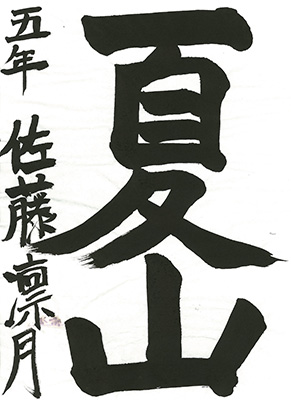 夏山
五年 佐藤凛月